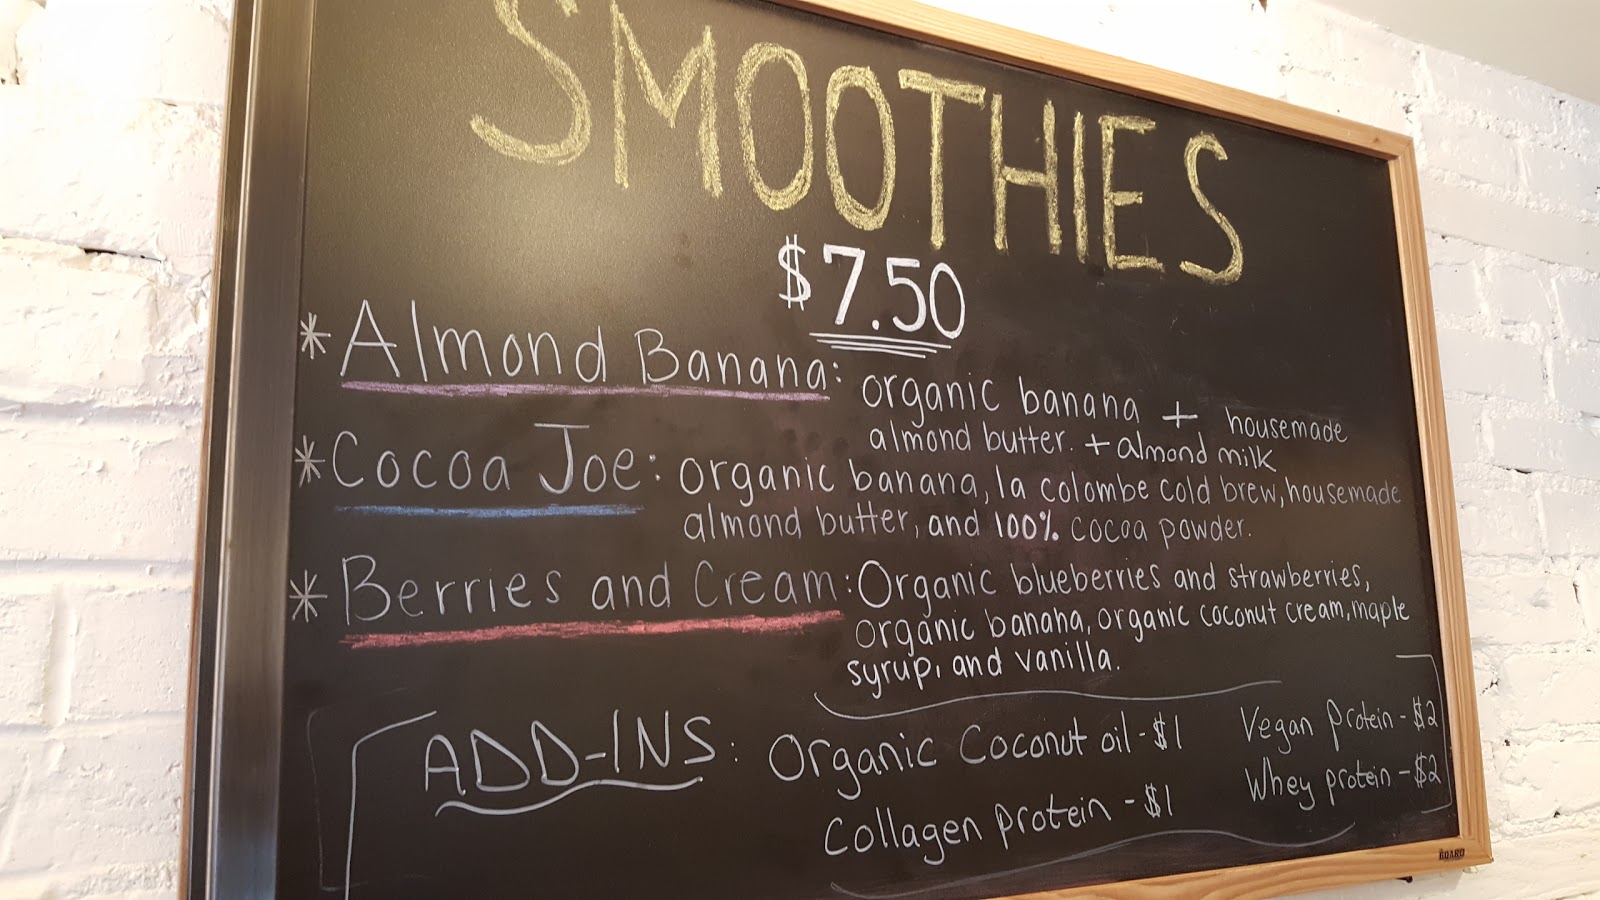 SMOOTHIES
$7.50
*Almond Banana: organic banana + housemade
almond butter. + almond milk
*Cocoa Joe: organic banana, la colombe cold brew, housemade
almond butter, and 100% cocoa powder.
*Berries and Cream: Organic blueberries and strawberries,
organic banana, organic coconut cream, maple
syrup, and vanilla.
ADD-INS: Organic Coconut oil - $1
Collagen protein - $1
Vegan protein - $2
Whey protein - $2
BOARD